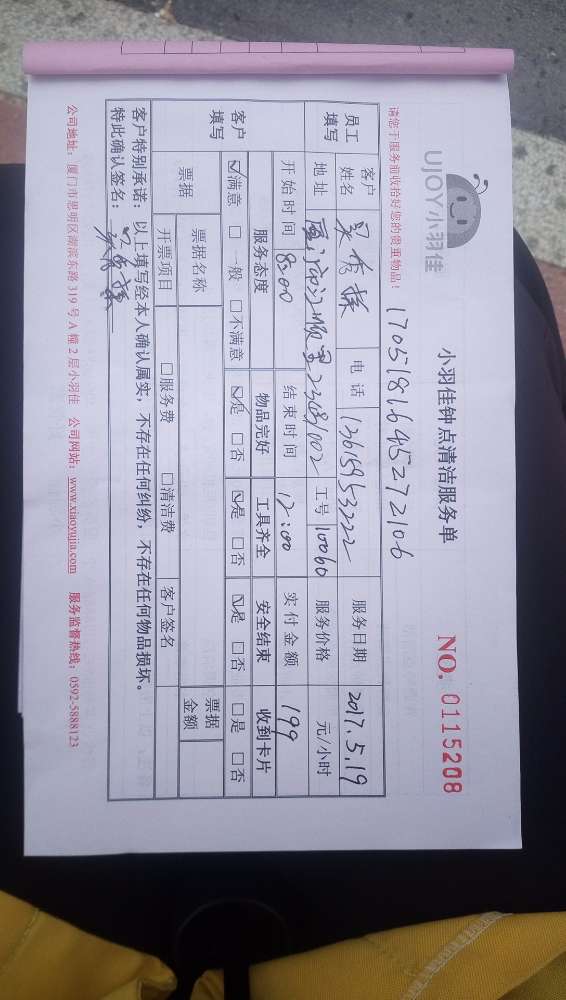 UJOY小羽佳
小羽佳钟点清洁服务单
NO. 0115208
请您于服务前收拾好您的贵重物品!
1705181645272106
员工填写 客户姓名 吴 电话 13615953222 服务日期 2017.5.19
地址 1002 工号 10060 服务价格 元/小时
开始时间 8:00 结束时间 12:00 实付金额 199
客户填写 服务态度 物品完好 工具齐全 安全结束 收到卡片
☑满意 □一般 □不满意 ☑是 □否 ☑是 □否 ☑是 □否 □是 □否
票据 票据名称 票据金额
开票项目 □服务费 □清洁费 客户签名
客户特别承诺:以上填写经本人确认属实,不存在任何纠纷,不存在任何物品损坏。
特此确认签名:
公司地址:厦门市思明区湖滨东路 319 号 A 幢 2 层小羽佳 公司网站:www.xiaoyujia.com 服务监督热线:0592-5888123